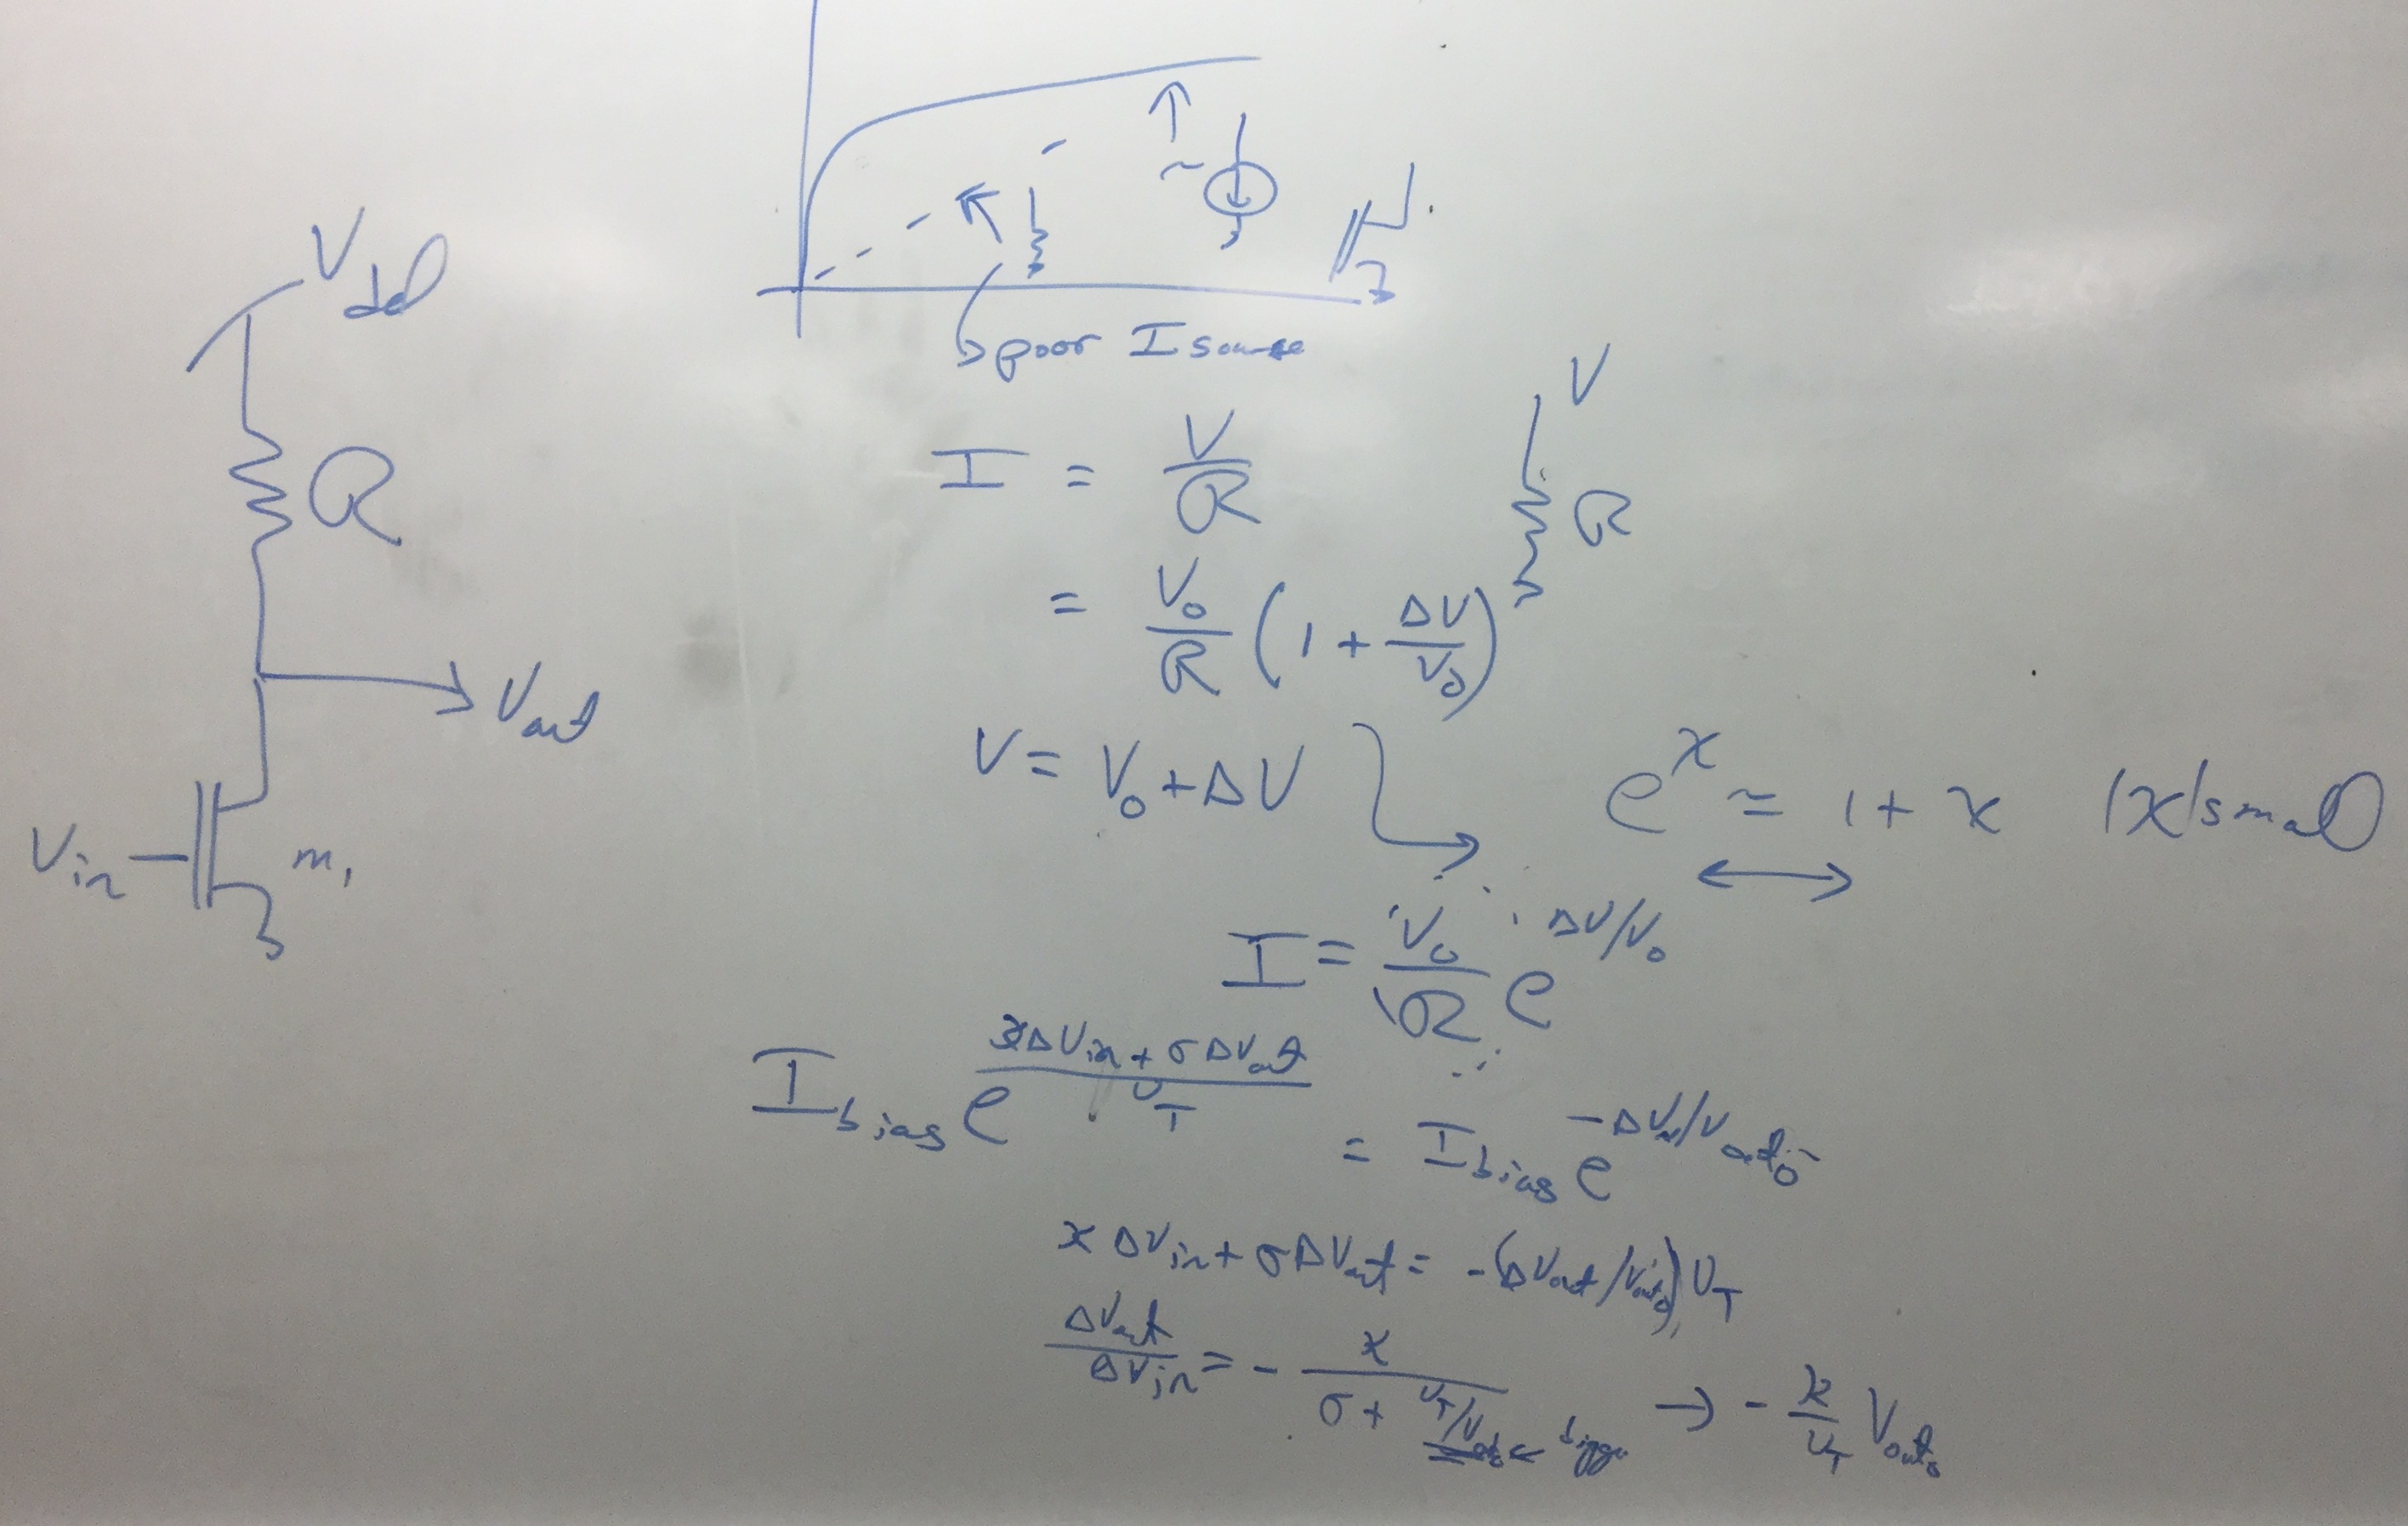 V_dd
R
V_out
V_in
m_1
~
poor I source
I = V/R
V
R
= V_0/R (1 + ΔV/V_0)
V = V_0 + ΔV
e^x ≈ 1 + x |x| small
I = V_0/R e^{ΔV/V_0}
I_bias e^{(κΔV_in + σΔV_out)/U_T} = I_bias e^{-ΔV_out/V_out_0}
κ ΔV_in + σΔV_out = -(ΔV_out/V_out_0) U_T
ΔV_out/ΔV_in = - κ/(σ + U_T/V_out_0) ← bigger → - κ/U_T V_out_0